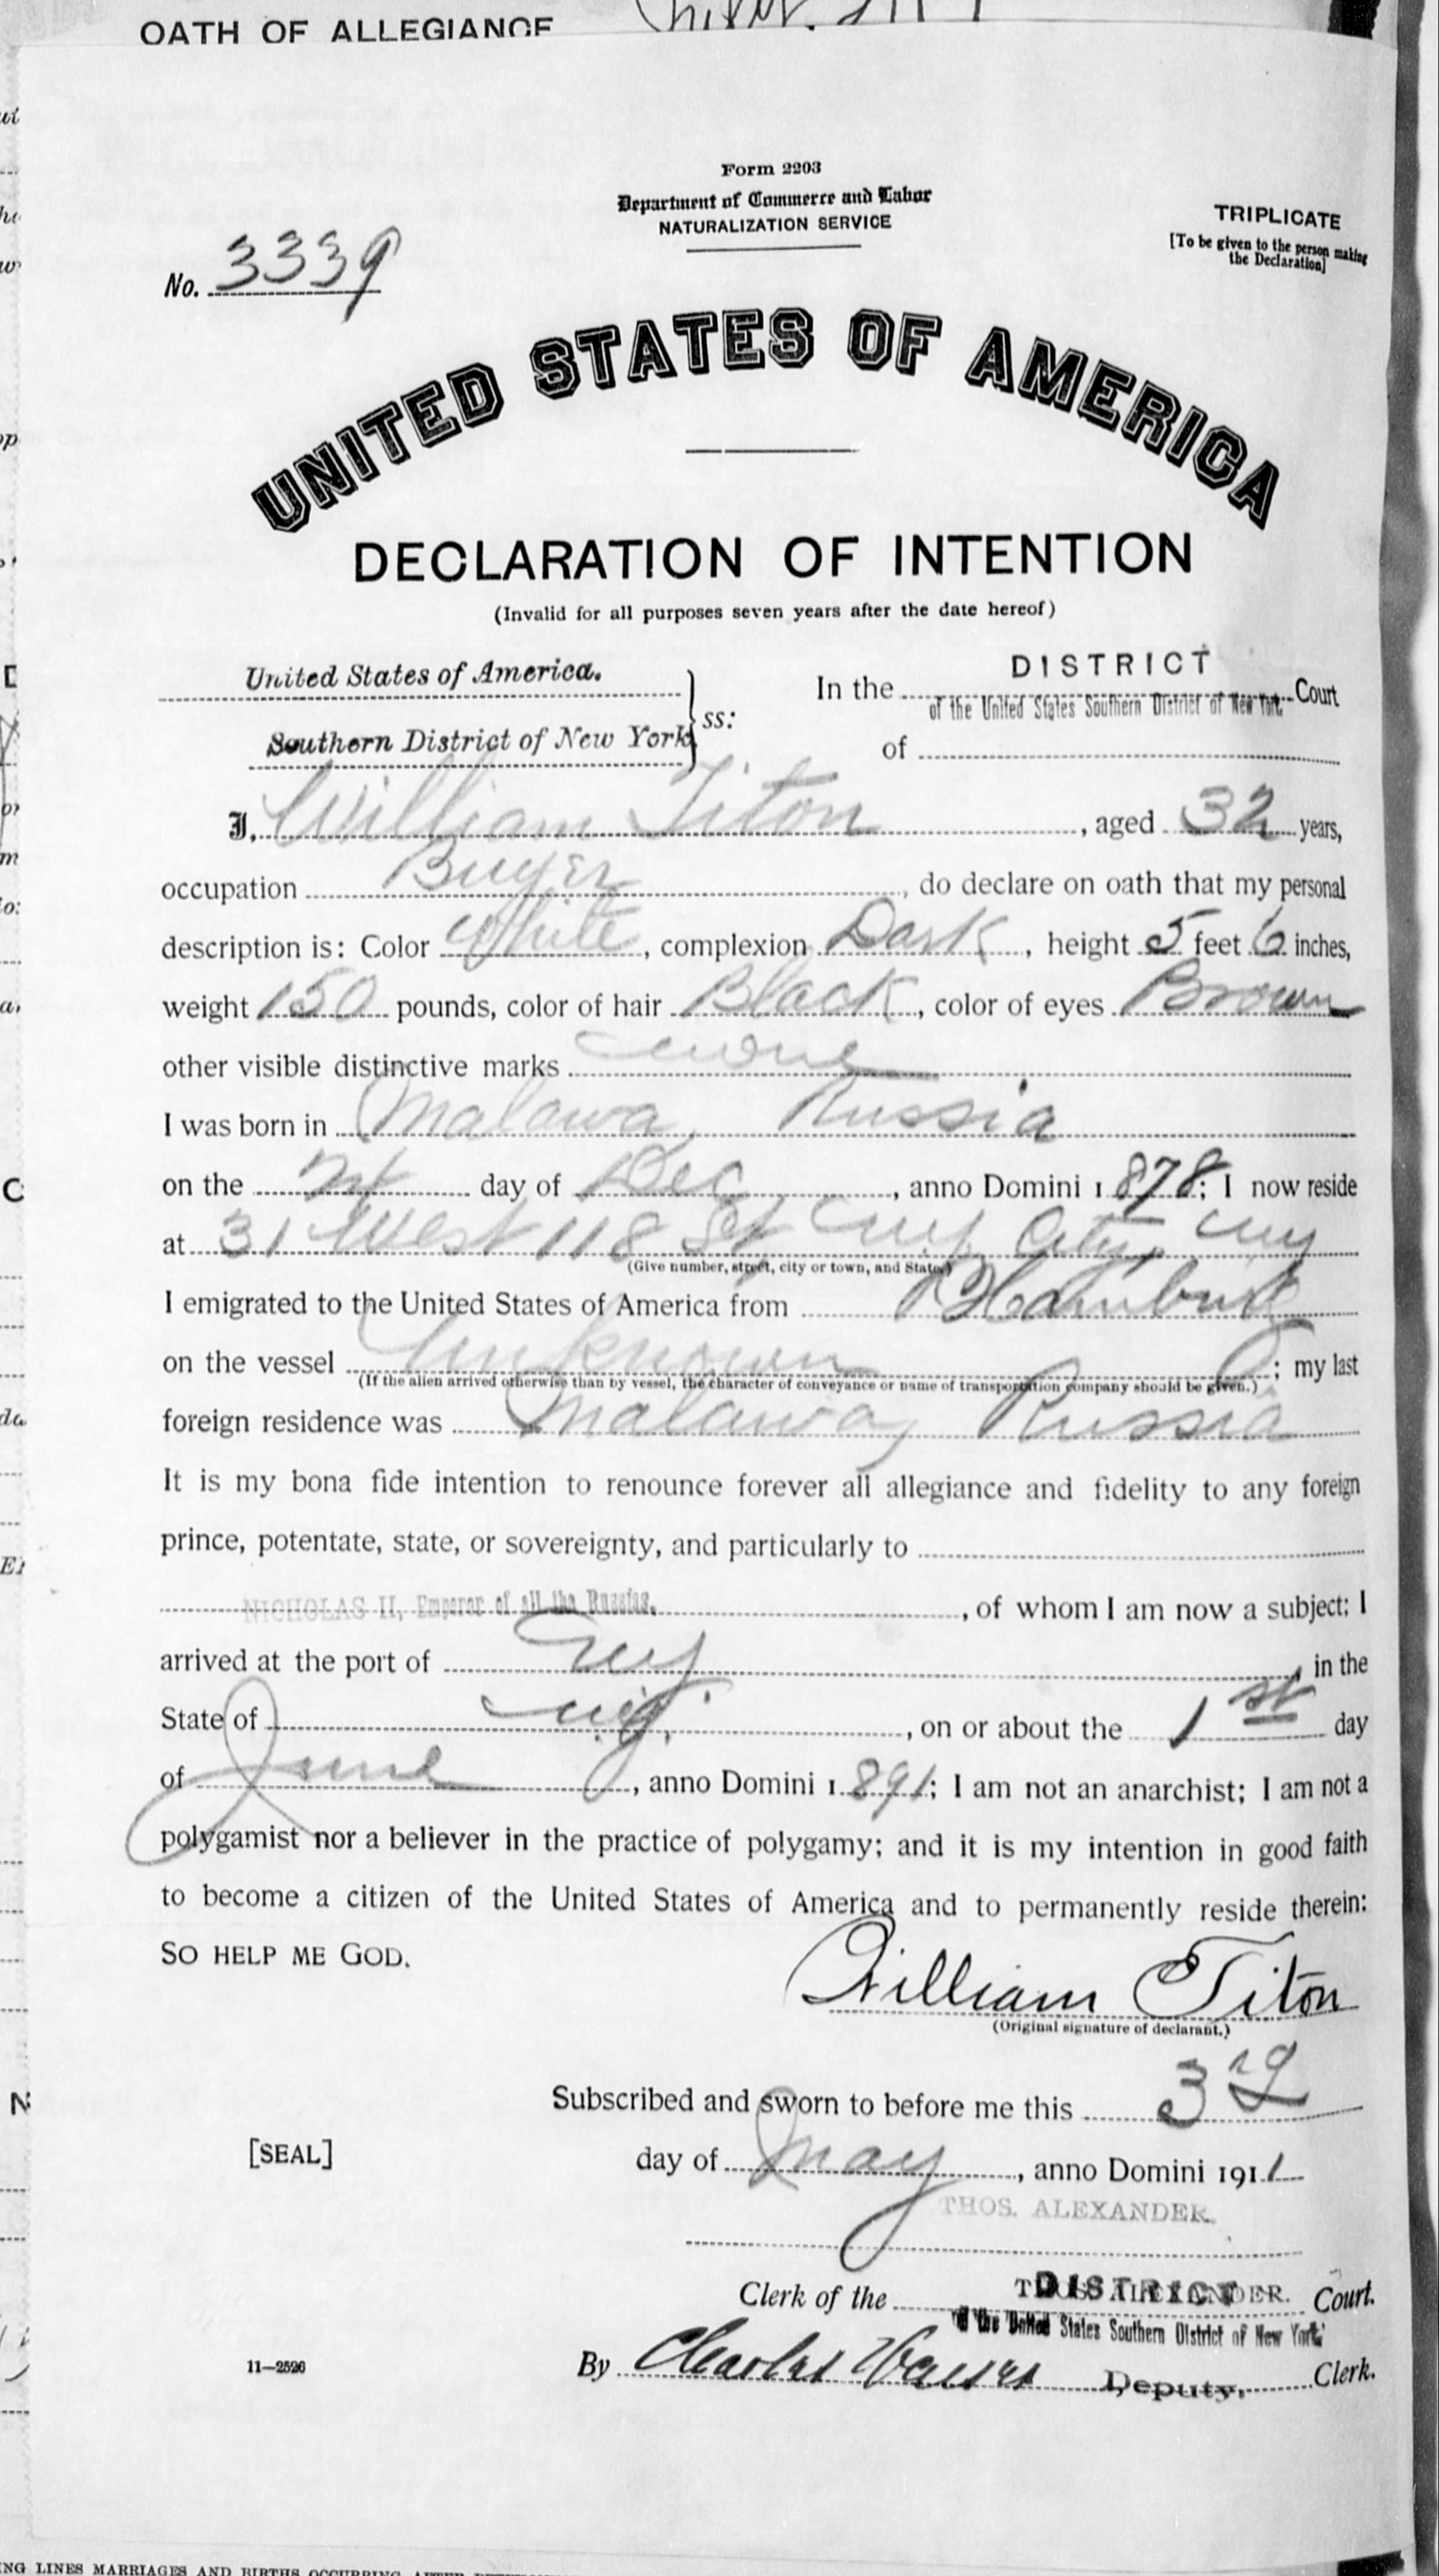 OATH OF ALLEGIANCE
Form 2203
Department of Commerce and Labor
NATURALIZATION SERVICE
TRIPLICATE
[To be given to the person making
the Declaration]
No. 3339
UNITED STATES OF AMERICA
DECLARATION OF INTENTION
(Invalid for all purposes seven years after the date hereof)
United States of America.
Southern District of New York
ss:
In the DISTRICT Court
of the United States Southern District of New York.
of
I, William Titon, aged 32 years,
occupation Buyer, do declare on oath that my personal
description is: Color White, complexion Dark, height 5 feet 6 inches,
weight 150 pounds, color of hair Black, color of eyes Brown
other visible distinctive marks none
I was born in Malawa, Russia
on the day of Dec, anno Domini 1878; I now reside
at 31 West 118 St NY City, NY
(Give number, street, city or town, and State.)
I emigrated to the United States of America from
on the vessel Unknown; my last
(If the alien arrived otherwise than by vessel, the character of conveyance or name of transportation company should be given.)
foreign residence was Malawa, Russia
It is my bona fide intention to renounce forever all allegiance and fidelity to any foreign
prince, potentate, state, or sovereignty, and particularly to
NICHOLAS II, Emperor of all the Russias, of whom I am now a subject; I
arrived at the port of NY, in the
State of NY, on or about the 1st day
of June, anno Domini 1891; I am not an anarchist; I am not a
polygamist nor a believer in the practice of polygamy; and it is my intention in good faith
to become a citizen of the United States of America and to permanently reside therein:
SO HELP ME GOD.
William Titon
(Original signature of declarant.)
Subscribed and sworn to before me this 3rd
[SEAL]
day of May, anno Domini 1911
THOS. ALEXANDER.
Clerk of the DISTRICT Court.
of the United States Southern District of New York
11—2526
By Charles Deputy, Clerk.